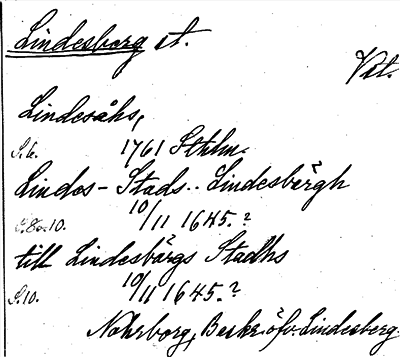 Lindesborg st.
Vst.
Lindesåhs,
S.6. 1761 Sthlm.
Lindes-Stads.. Lindesbergh
S.8o.10. 10/11 1645.?
till Lindesbärgs Stadhs
S.10. 10/11 1645.?
Nohrborg, Beskr. öfv. Lindesberg.